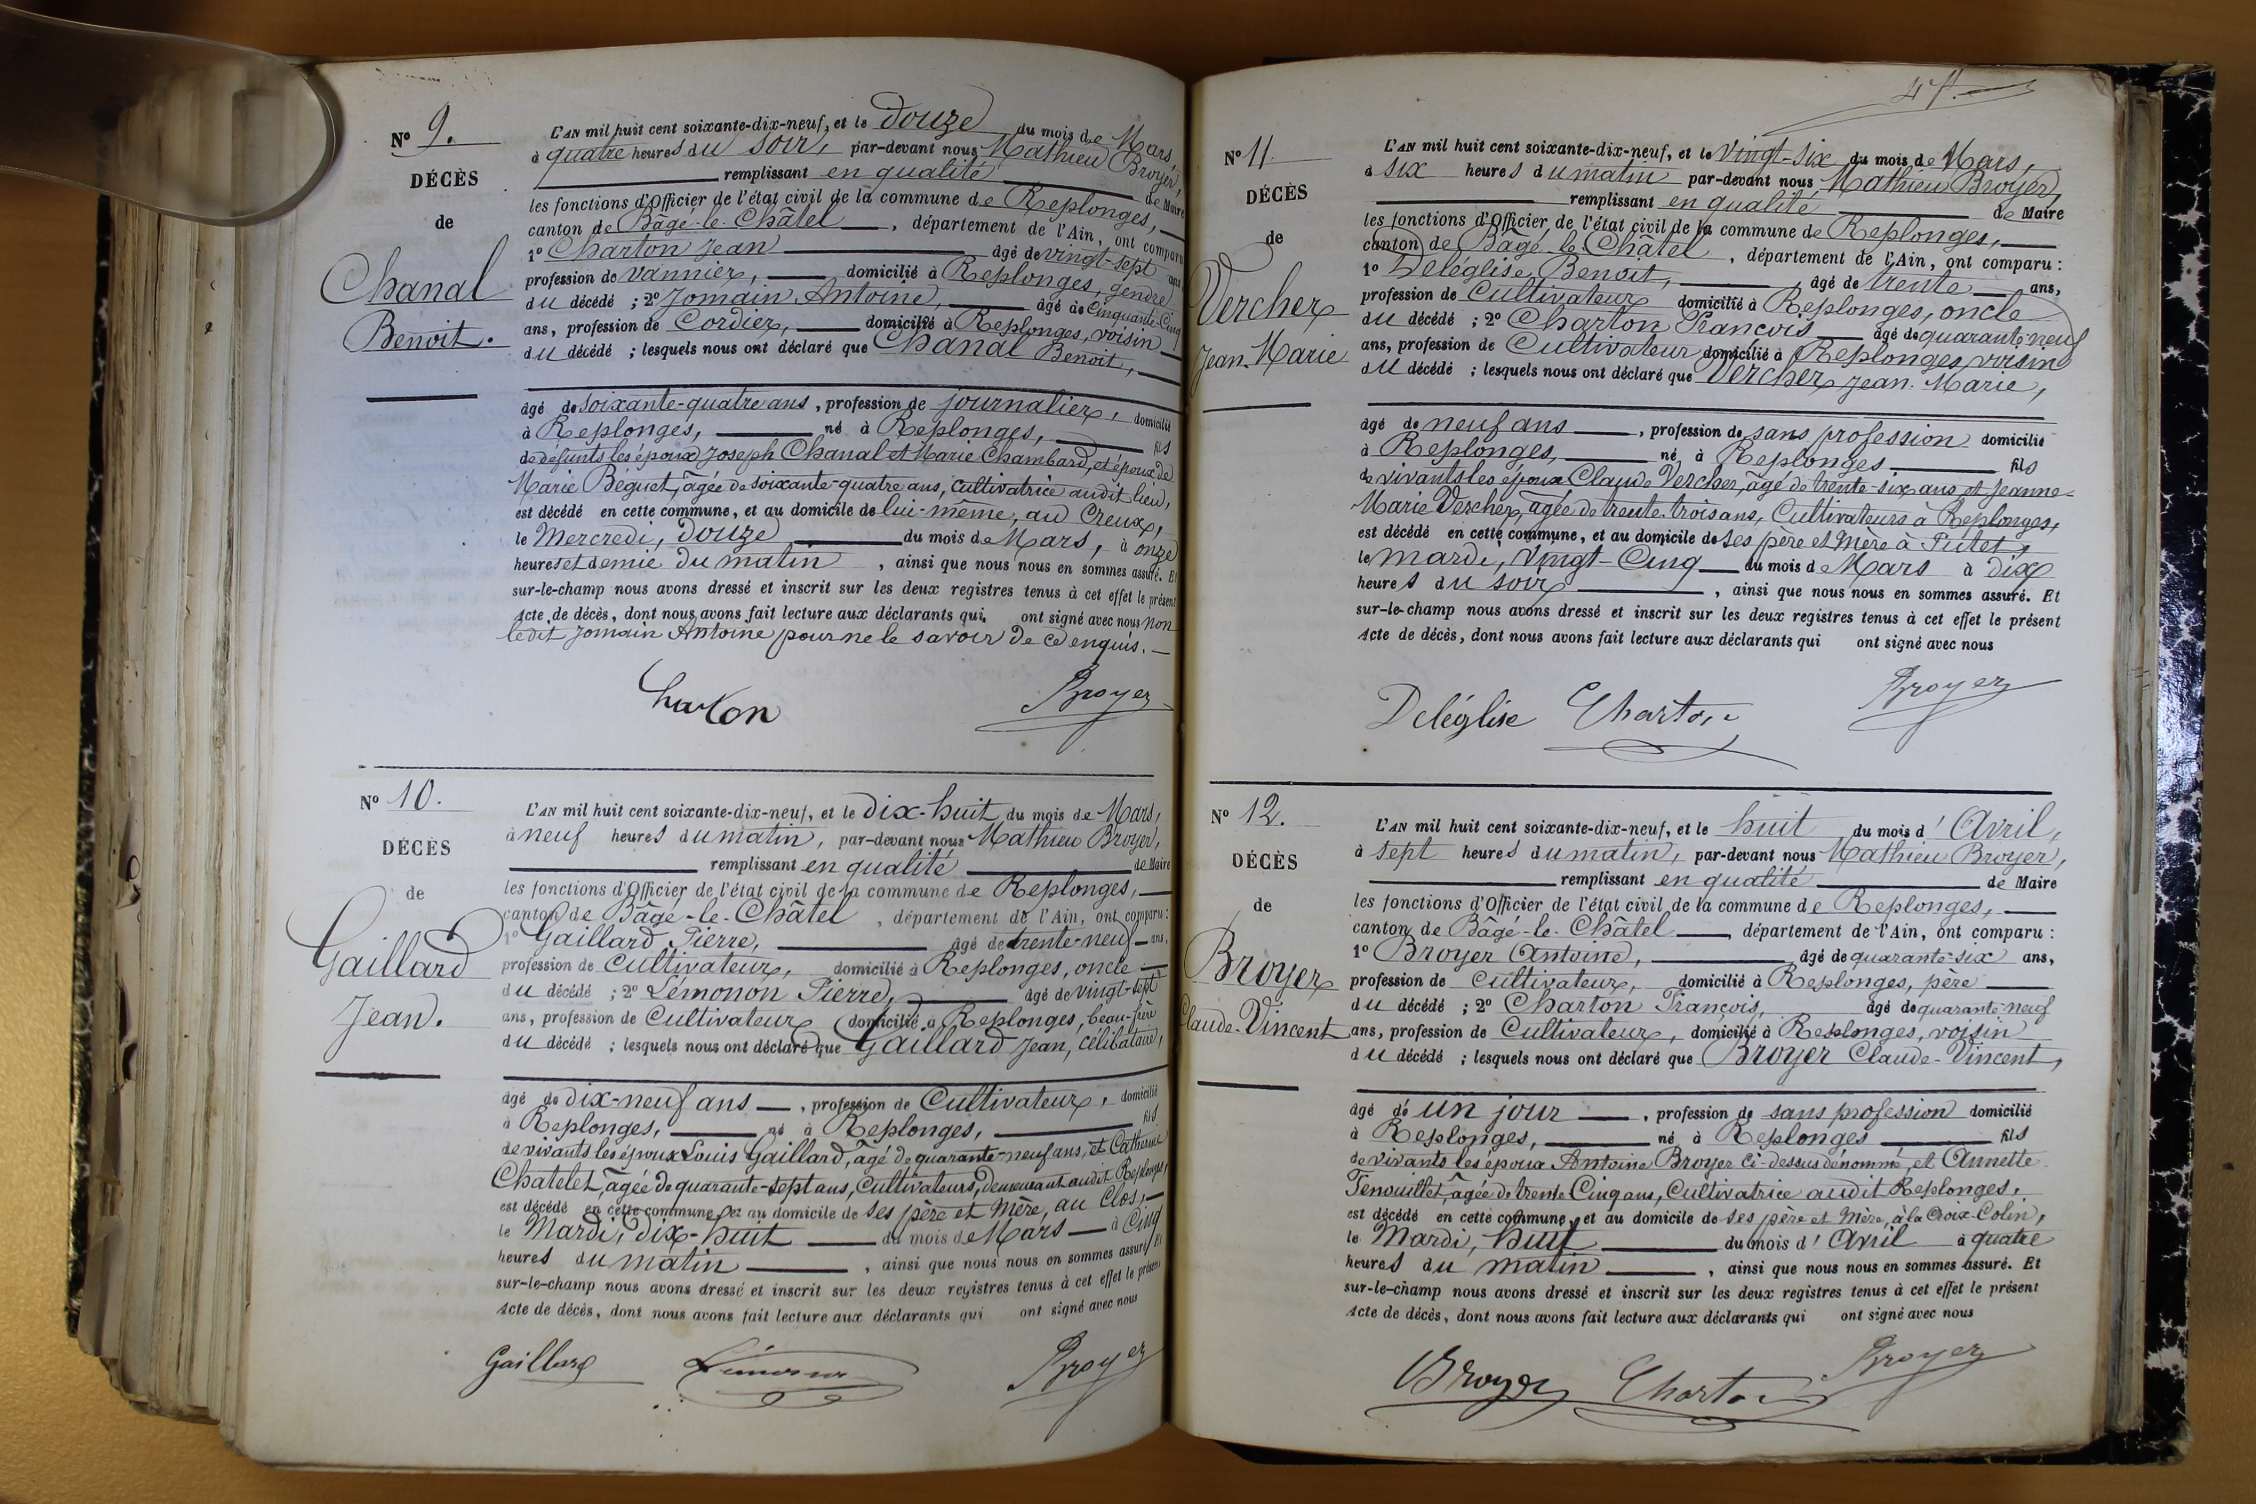 Nº 9.
DÉCÈS
de
Chanal
Benoit.
L'AN mil huit cent soixante-dix-neuf, et le douze du mois de Mars,
à quatre heures du soir, par-devant nous Mathieu Broyer,
remplissant en qualité de Maire
les fonctions d'Officier de l'état civil de la commune de Replonges,
canton de Bâgé-le-Châtel, département de l'Ain, ont comparu
1º Charton Jean âgé de vingt-sept ans
profession de vannier, domicilié à Replonges, gendre
du décédé ; 2º Jomain Antoine, âgé de Cinquante-Cinq
ans, profession de Cordier, domicilié à Replonges, voisin
du décédé ; lesquels nous ont déclaré que Chanal Benoit,
âgé de soixante-quatre ans, profession de journalier, domicilié
à Replonges, né à Replonges, fils
de défunts les époux Joseph Chanal et Marie Chambard, et époux de
Marie Béguet, âgée de soixante-quatre ans, cultivatrice audit lieu,
est décédé en cette commune, et au domicile de lui-même, au Creux,
le Mercredi, douze du mois de Mars, à onze
heures et demie du matin, ainsi que nous nous en sommes assuré. Et
sur-le-champ nous avons dressé et inscrit sur les deux registres tenus à cet effet le présent
Acte de décès, dont nous avons fait lecture aux déclarants qui ont signé avec nous non
ledit Jomain Antoine pour ne le savoir de ce enquis.
Charton Broyer
Nº 10.
DÉCÈS
de
Gaillard
Jean.
L'AN mil huit cent soixante-dix-neuf, et le dix-huit du mois de Mars,
à neuf heures du matin, par-devant nous Mathieu Broyer,
remplissant en qualité de Maire
les fonctions d'Officier de l'état civil de la commune de Replonges,
canton de Bâgé-le-Châtel, département de l'Ain, ont comparu :
1º Gaillard Pierre, âgé de trente-neuf ans,
profession de cultivateur, domicilié à Replonges, oncle
du décédé ; 2º Lémonon Pierre, âgé de vingt-sept
ans, profession de Cultivateur domicilié à Replonges, beau-frère
du décédé ; lesquels nous ont déclaré que Gaillard Jean, célibataire,
âgé de dix-neuf ans, profession de Cultivateur, domicilié
à Replonges, né à Replonges, fils
de vivants les époux Louis Gaillard, âgé de quarante-neuf ans, et Catherine
Chatelet, âgée de quarante-sept ans, Cultivateurs, demeurant audit Replonges,
est décédé en cette commune, et au domicile de ses père et mère, au Clos,
le Mardi, dix-huit du mois de Mars à Cinq
heures du matin, ainsi que nous nous en sommes assuré. Et
sur-le-champ nous avons dressé et inscrit sur les deux registres tenus à cet effet le présent
Acte de décès, dont nous avons fait lecture aux déclarants qui ont signé avec nous
Gaillard Lémonon Broyer
Nº 11.
DÉCÈS
de
Vercher
Jean-Marie
L'AN mil huit cent soixante-dix-neuf, et le Vingt-six du mois de Mars,
à six heures du matin par-devant nous Mathieu Broyer,
remplissant en qualité de Maire
les fonctions d'Officier de l'état civil de la commune de Replonges,
canton de Bâgé-le-Châtel, département de l'Ain, ont comparu :
1º Deléglise Benoit, âgé de trente ans,
profession de Cultivateur domicilié à Replonges, oncle
du décédé ; 2º Charton François âgé de quarante-neuf
ans, profession de Cultivateur domicilié à Replonges, voisin
du décédé ; lesquels nous ont déclaré que Vercher Jean-Marie,
âgé de neuf ans, profession de sans profession domicilié
à Replonges, né à Replonges fils
de vivants les époux Claude Vercher, âgé de trente-six ans, et Jeanne-
Marie Vercher, âgée de trente-trois ans, Cultivateurs à Replonges,
est décédé en cette commune, et au domicile de ses père et mère à Piétet,
le mardi, Vingt-Cinq du mois de Mars à dix
heures du soir, ainsi que nous nous en sommes assuré. Et
sur-le-champ nous avons dressé et inscrit sur les deux registres tenus à cet effet le présent
Acte de décès, dont nous avons fait lecture aux déclarants qui ont signé avec nous
Deléglise Charton Broyer
Nº 12.
DÉCÈS
de
Broyer
Claude-Vincent
L'AN mil huit cent soixante-dix-neuf, et le huit du mois d'Avril,
à sept heures du matin, par-devant nous Mathieu Broyer,
remplissant en qualité de Maire
les fonctions d'Officier de l'état civil de la commune de Replonges,
canton de Bâgé-le-Châtel, département de l'Ain, ont comparu :
1º Broyer Antoine, âgé de quarante-six ans,
profession de cultivateur, domicilié à Replonges, père
du décédé ; 2º Charton François, âgé de quarante-neuf
ans, profession de Cultivateur, domicilié à Replonges, voisin
du décédé ; lesquels nous ont déclaré que Broyer Claude-Vincent,
âgé d'un jour, profession de sans profession domicilié
à Replonges, né à Replonges fils
de vivants les époux Antoine Broyer ci-dessus dénommé, et Annette
Tenouillet, âgée de trente Cinq ans, Cultivatrice audit Replonges,
est décédé en cette commune, et au domicile de ses père et mère, à la Croix-Colin,
le Mardi, huit du mois d'Avril à quatre
heures du matin, ainsi que nous nous en sommes assuré. Et
sur-le-champ nous avons dressé et inscrit sur les deux registres tenus à cet effet le présent
Acte de décès, dont nous avons fait lecture aux déclarants qui ont signé avec nous
Broyer Charton Broyer